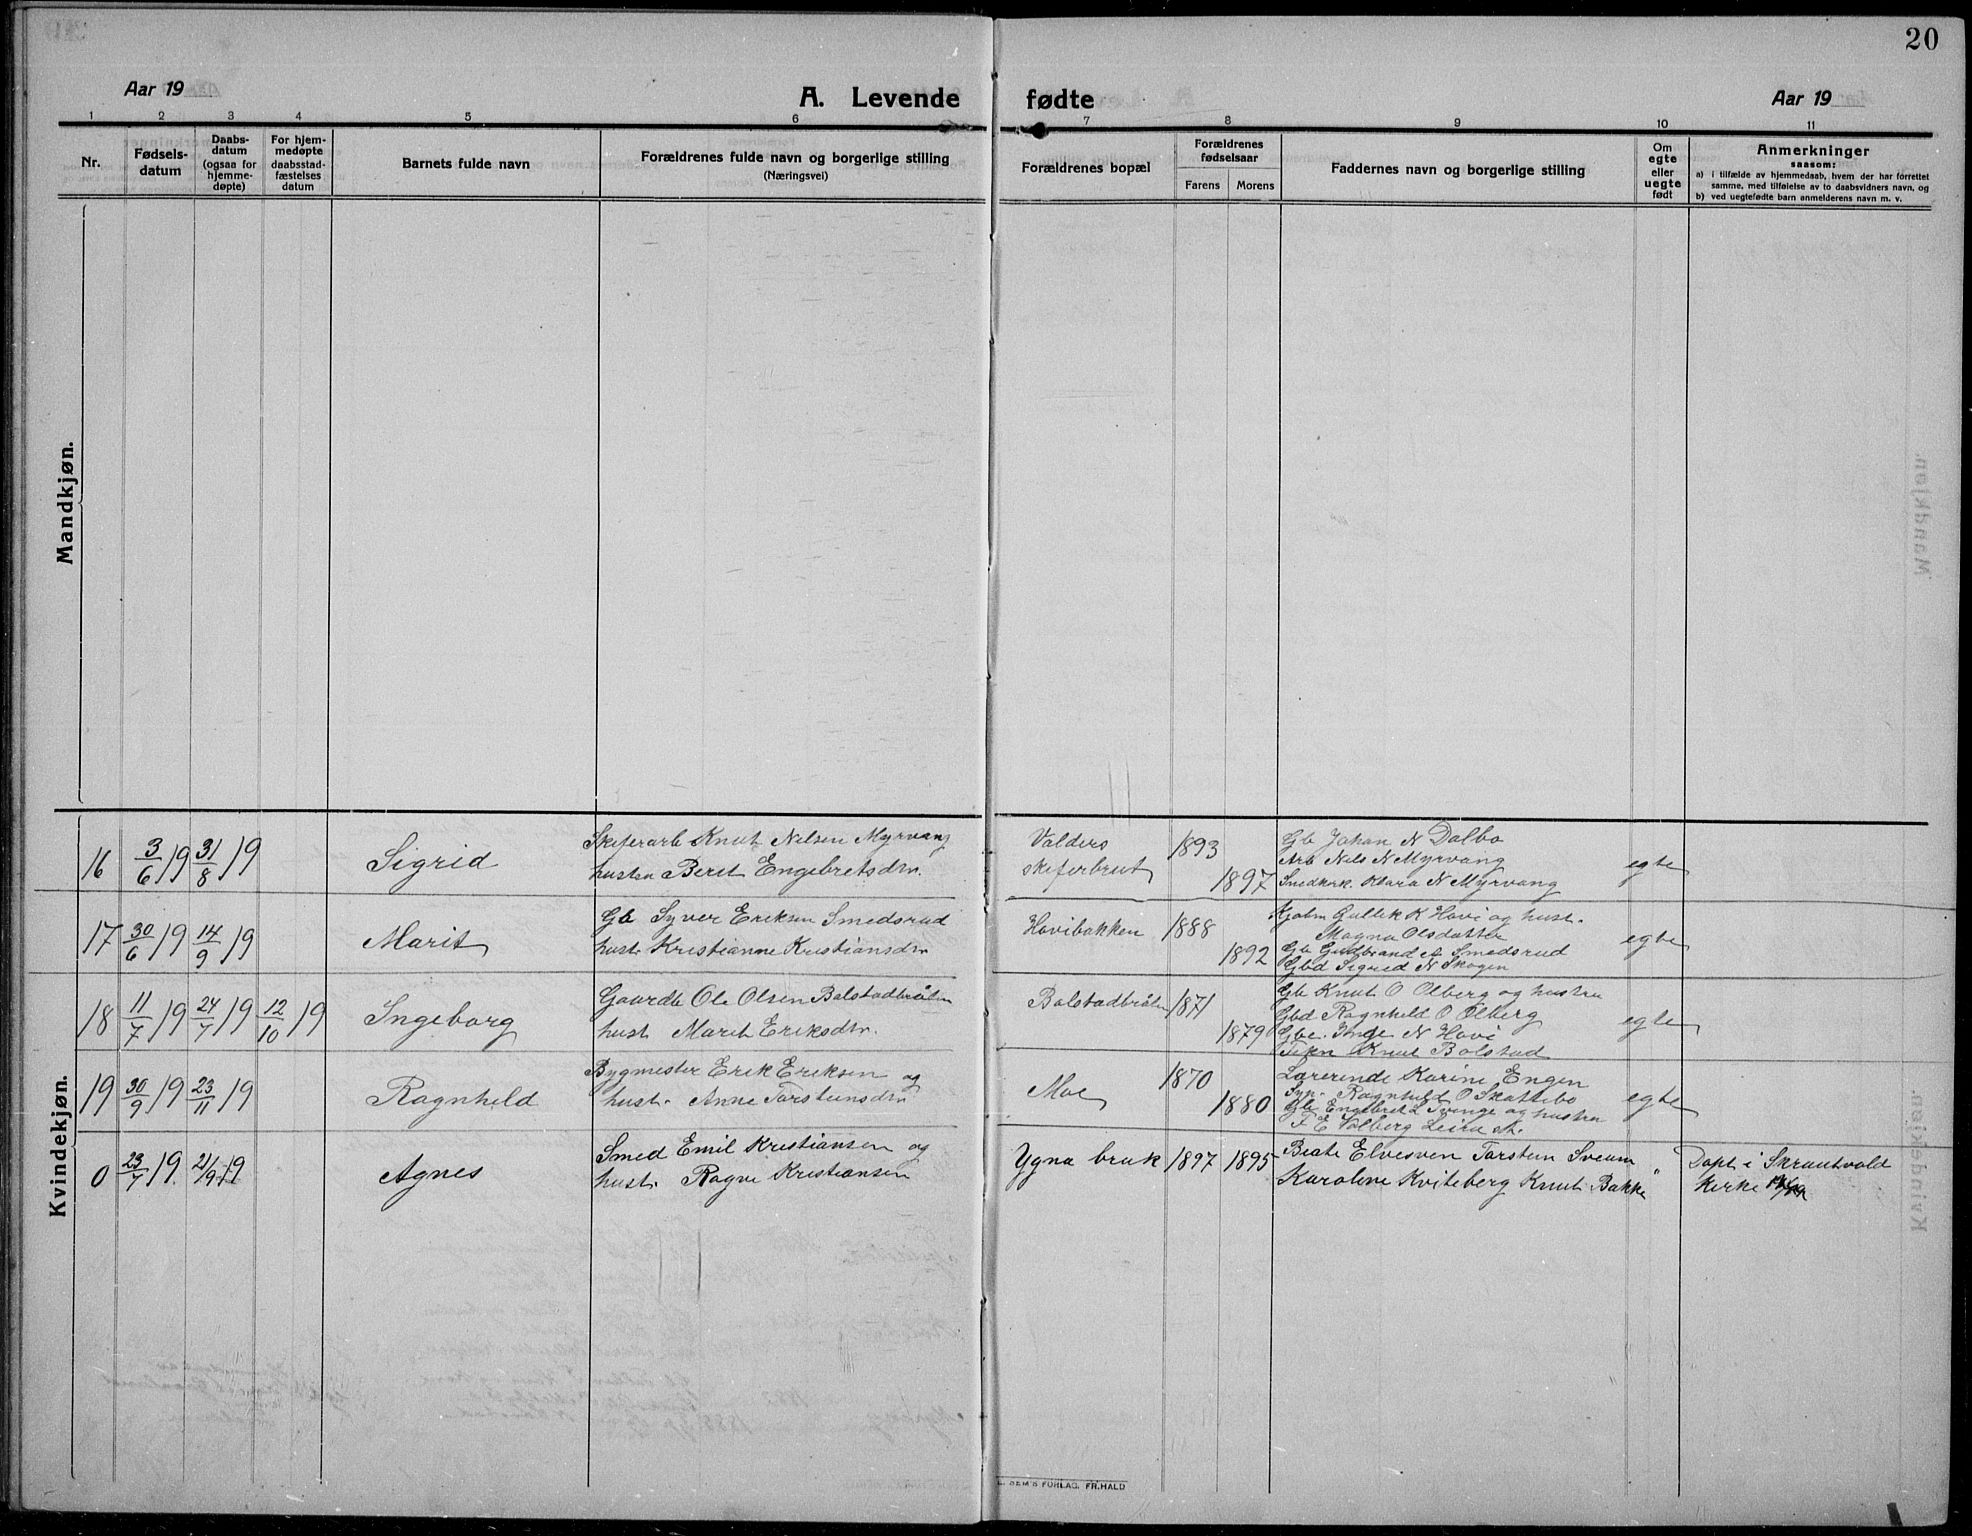 20
Aar 19
A. Levende fødte
Aar 19
1 2 3 4 5 6 7 8 9 10 11
Nr.
Fødsels-
datum
Daabs-
datum
(ogsaa for
hjemme-
døpte)
For hjem-
medøpte
daabsstad-
fæstelses
datum
Barnets fulde navn
Forældrenes fulde navn og borgerlige stilling
(Næringsvei)
Forældrenes bopæl
Forældrenes
fødselsaar
Farens Morens
Faddernes navn og borgerlige stilling
Om
egte
eller
uegte
født
Anmerkninger
saasom:
a) i tilfælde av hjemmedaab, hvem der har forrettet
samme, med tilføielse av to daabsvidners navn, og
b) ved uegtefødte barn anmelderens navn m. v.
Mandkjøn.
Kvindekjøn.
16 3/6 19 31/8 19 Sigrid
Skiferarb Knut Nilsen Myrvang
hustru Berit Engebretsdtr.
Valders
skiferbrut
1893
1897
Gb Johan N Dalbo
Arb Nils N Myrvang
Klara N Myrvang
egte
17 30/6 19 14/9 19 Marit
Gb Syver Eriksen Smedsrud
hust. Kristianne Kristiansdtr
Hovibakken
1888
1892
Gullik K Hovi og hust.
Magna Olsdatter
Gb Gudbrand Smedsrud
Gbd Sigrid N Skogen
egte
18 11/7 19 24/7 19 12/10 19 Ingeborg
Gaardb Ole Olsen Bolstadbråten
hust Marit Eriksdtr.
Bolstadbråten
1871
1879
Gb Knut O Olberg og hustru
Gbd Ragnhild O Olberg
Gbe. Inge N Hovi
Knut Bolstad
egte
19 30/9 19 23/11 19 Ragnhild
Bygmester Erik Eriksen og
hust. Anne Torsteinsdtr
Moe
1870
1880
Lærerinde Karine Engen
Syp. Ragnhild O Skattebo
Gb Engebret Svinge og hustru
F E Volberg Leira st.
egte
0 23/7 19. 21/9 19 Agnes
Smed Emil Kristiansen og
hust. Ragne Kristiansen
Ygna bruk
1897 1895
Beate Elvesven Torstein Sveum
Karoline Kviteberg Knut Bakke
"
Døpt i Skrautvold
kirke
E. SEM'S FORLAG, FR.HALD